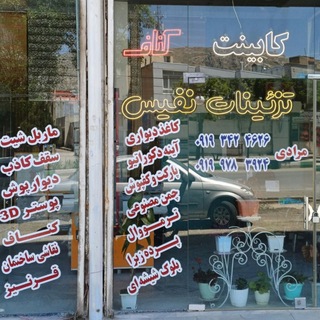 کابینت
کناف
تزئینات نفیس
کاغذ دیواری
آینه دکوراتیو
پارکت و کفپوش
چمن مصنوعی
ترمووال
پرده زبرا
بلوک شیشه ای
۰۹۱۹ ۳۴۲ ۴۶۲۶
مرادی
۰۹۱۹ ۹۷۸ ۳۹۲۴
ماربل شیت
سقف کاذب
دیوارپوش
پوستر 3D
کناف
نقاشی ساختمان
قرنیز